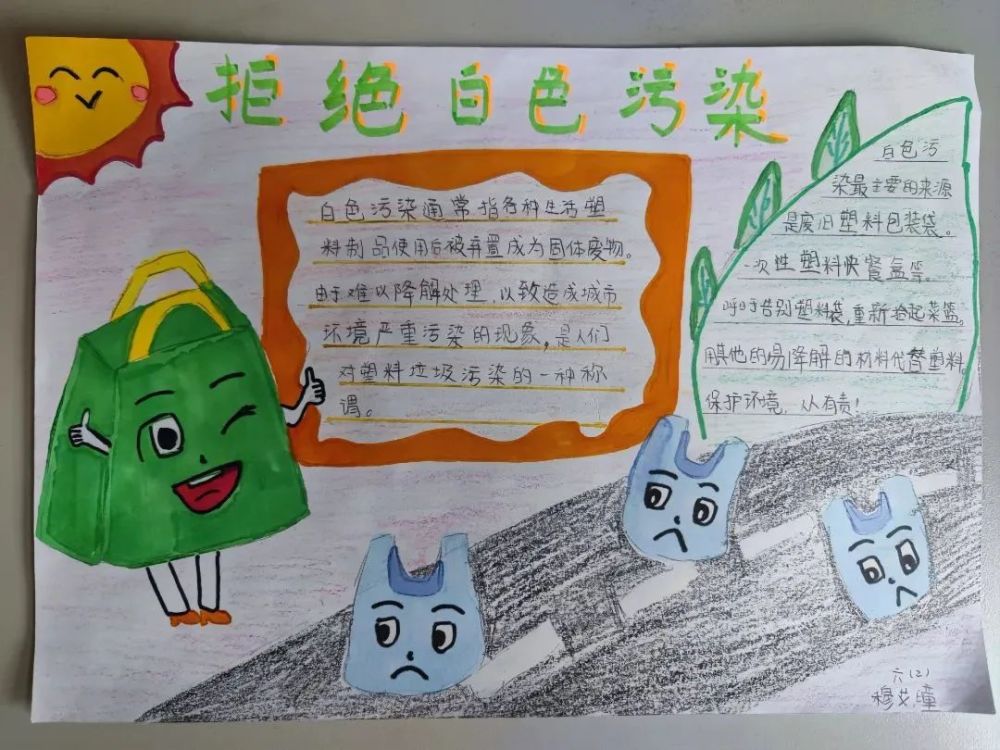 拒绝白色污染
白色污染通常指各种生活塑
料制品使用后被弃置成为固体废物。
由于难以降解处理，以致造成城市
环境严重污染的现象，是人们
对塑料垃圾污染的一种称
谓。
白色污
染最主要的来源
是废旧塑料包装袋。
一次性塑料快餐盒等。
呼吁告别塑料袋，重新拾起菜篮。
用其他的易降解的材料代替塑料
保护环境，从有责！
六（2）
穆艾瞳